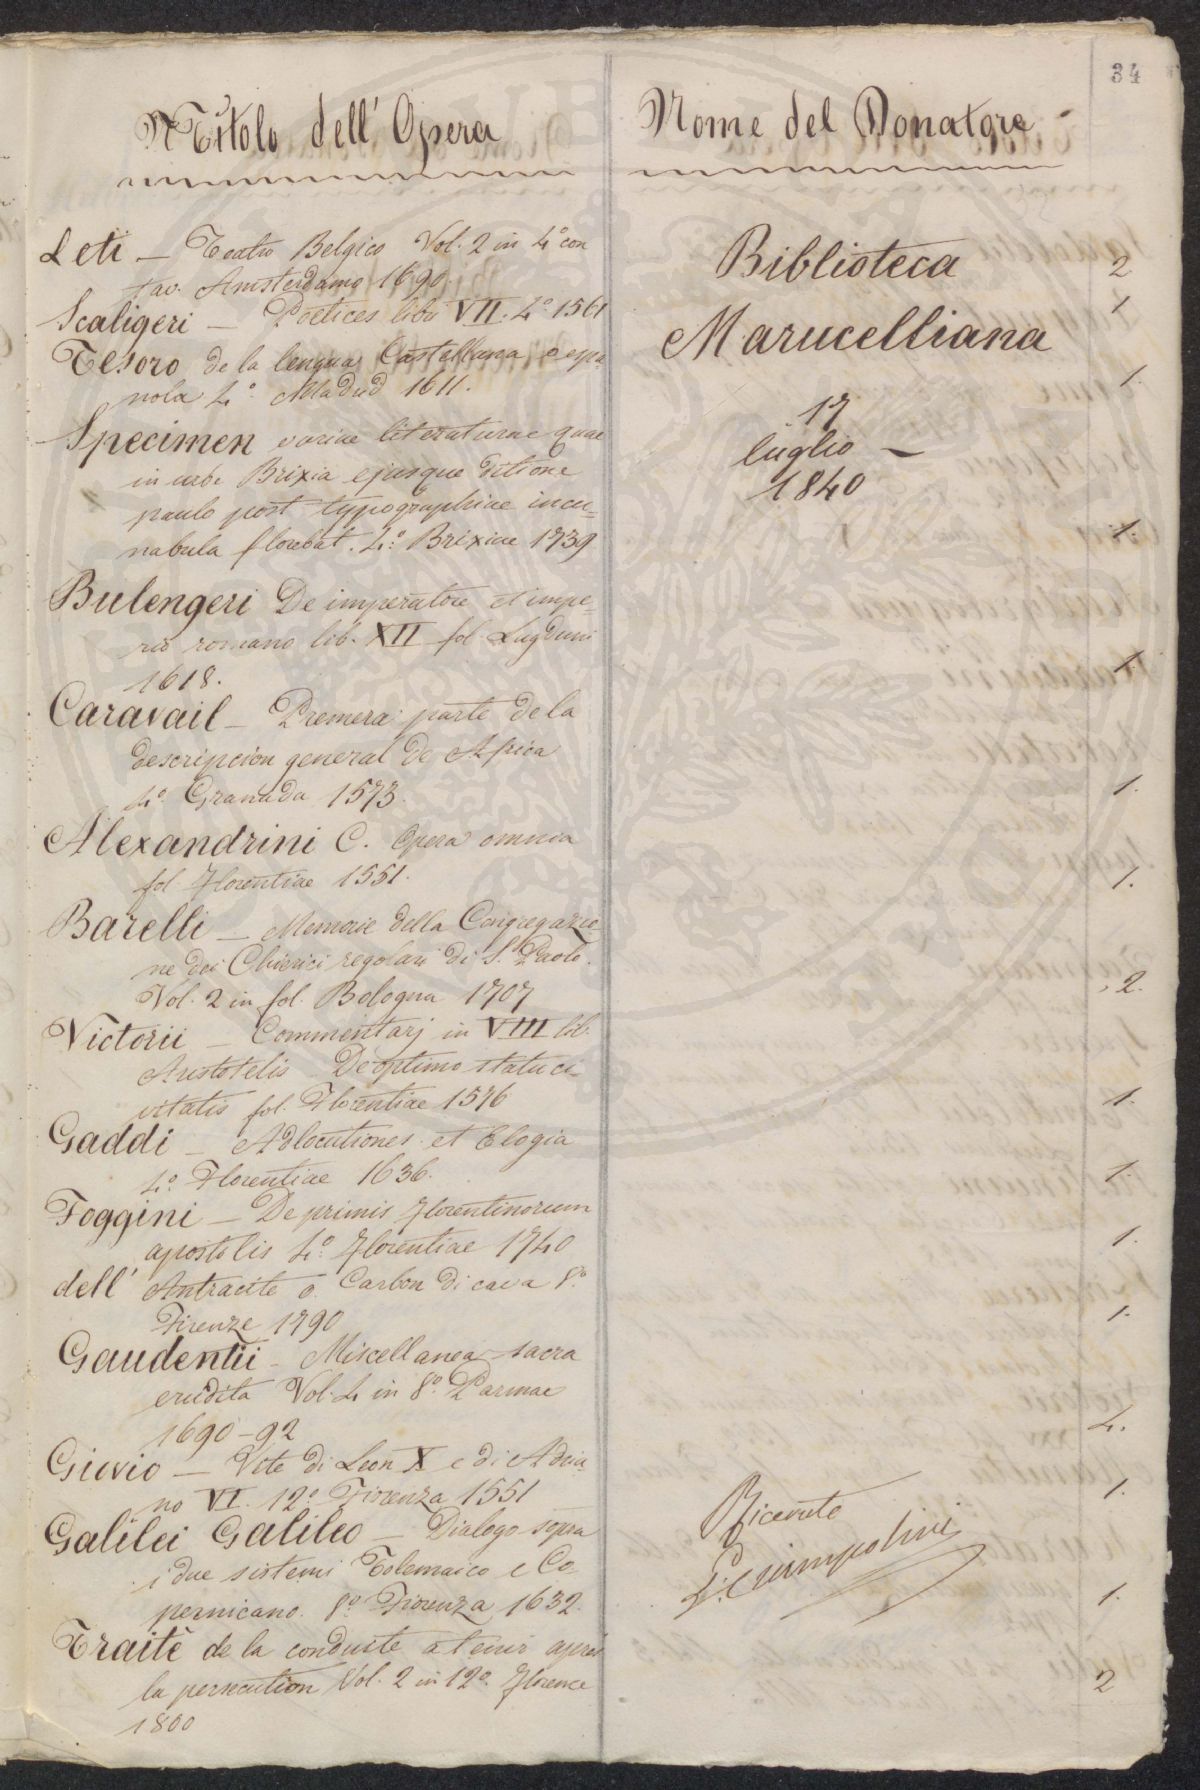 34
Titolo dell' Opera
Nome del Donatore
Leti — Teatro Belgico Vol. 2 in 4.º con
tav. Amsterdamo 1690.
Scaligeri — Poetices libri VII. 4.º 1561
Tesoro de la lengua Castellana o espa
nola 4.º Madrid 1611.
Specimen variae literaturae quae
in urbe Brixia ejusque ditione
paulo post typographiae incu=
nabula florebat. 4.º Brixiae 1739
Bulengeri De imperatore et impe=
rio romano lib. XII fol Lugduni
1618.
Caravail — Primera parte de la
descripcion general de Africa
4.º Granada 1573.
Alexandrini C. Opera omnia
fol Florentiae 1551.
Barelli — Memorie della Congregazio
ne dei Chierici regolari di S. Paolo.
Vol. 2 in fol. Bologna 1707
Victorii — Commentarj in VIII lib.
Aristotelis De optimo statu ci
vitatis fol. Florentiae 1576
Gaddi — Adlocutiones et Elogia
4.º Florentiae 1636.
Foggini — De primis Florentinorum
apostolis 4.º Florentiae 1740
dell' Antracite o Carbon di cava 8.º
Firenze 1790
Gaudentii — Miscellanea sacra
erudita Vol. 4 in 8.º Parmae
1690-92
Giovio — Vite di Leon X e di Adria
no VI. 12.º Fiorenza 1551
Galilei Galileo — Dialogo sopra
i due sistemi Tolemaico e Co
pernicano. 8.º Fiorenza 1632.
Traitè de la conduite a tenir après
la persecution Vol. 2 in 12.º Florence
1800
Biblioteca
Marucelliana
17
luglio —
1840
Ricevute
Ciampolini
2
1
1.
1.
1.
1.
1.
2.
1.
1.
1.
1.
4.
1.
1.
2